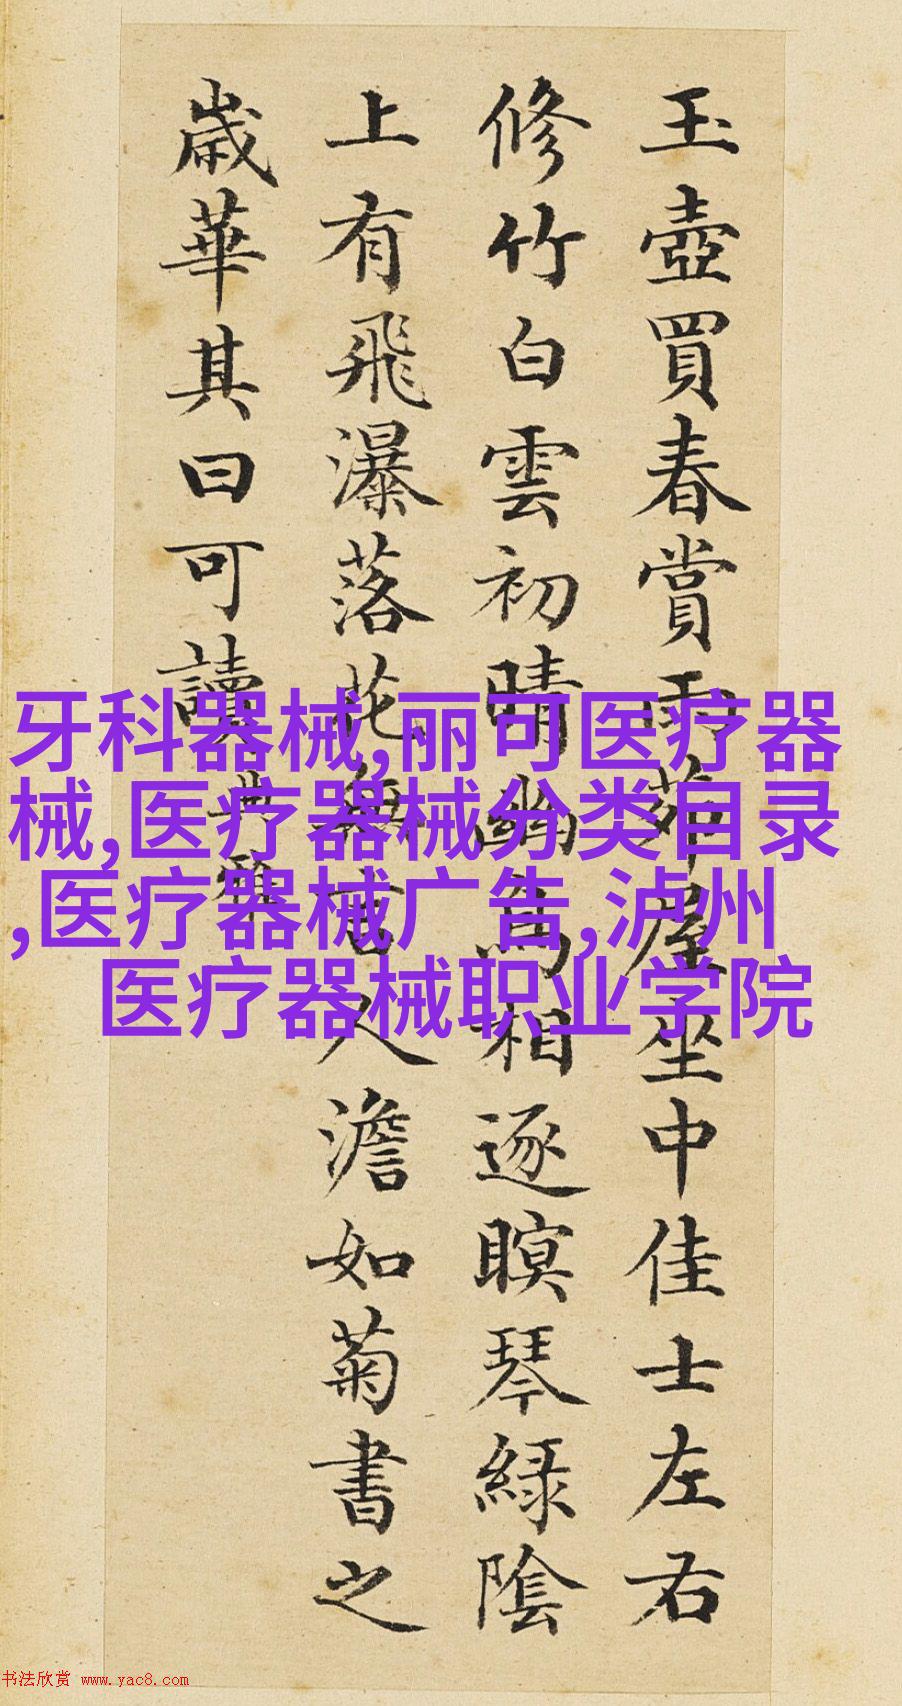 玉壺買春賞雨茆屋坐中佳士左右
修竹白雲初晴幽鳥相逐瞑琴綠陰
上有飛瀑落花無言人澹如菊書之
歲華其曰可讀 典雅
牙科器械,丽可医疗器
械,医疗器械分类目录
,医疗器械广告,泸州
医疗器械职业学院
书法欣赏 www.yac8.com